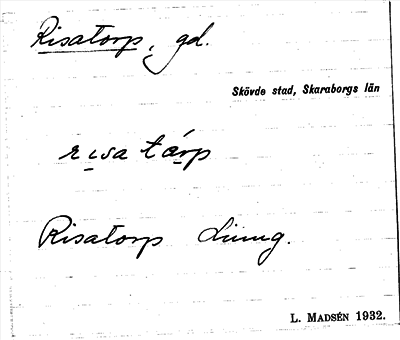 Risatorp, gd.
Skövde stad, Skaraborgs län
risa tårp
Risatorp
L. MADSÉN 1932.